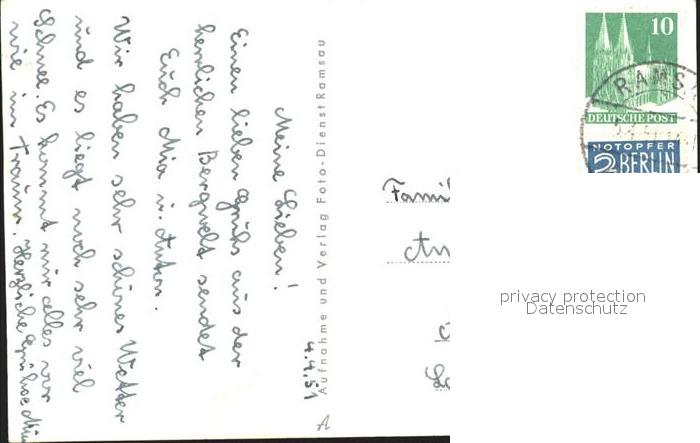 4.4.51
Meine Lieben!
Einen lieben Gruß aus der
herrlichen Bergwelt sendet
Euch Mia u. Anton.
Wir haben sehr schönes Wetter
und es liegt noch sehr viel
Schnee. Es kommt mir alles vor
wie im Traum. Herzliche Grüße Mia
Aufnahme und Verlag Foto-Dienst Ramsau
A
10
DEUTSCHE POST
RAMS
NOTOPFER
2 BERLIN
Famil
An
privacy protection
Datenschutz